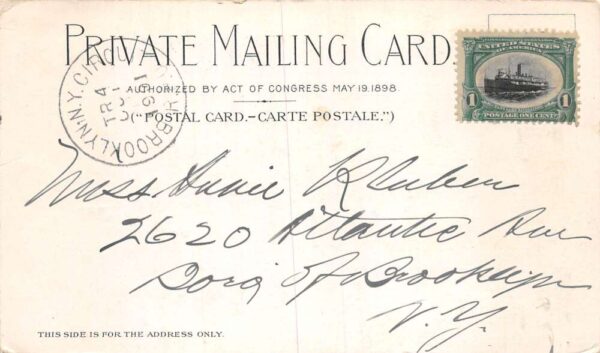 PRIVATE MAILING CARD.
AUTHORIZED BY ACT OF CONGRESS MAY 19, 1898.
("POSTAL CARD.–CARTE POSTALE.")
UNITED STATES
OF AMERICA
1 1
POSTAGE ONE CENT
BROOKLYN, N.Y.
TR4
OCT
1901
Miss Annie
2620 Atlantic Ave
Boro of Brooklyn
N.Y.
THIS SIDE IS FOR THE ADDRESS ONLY.